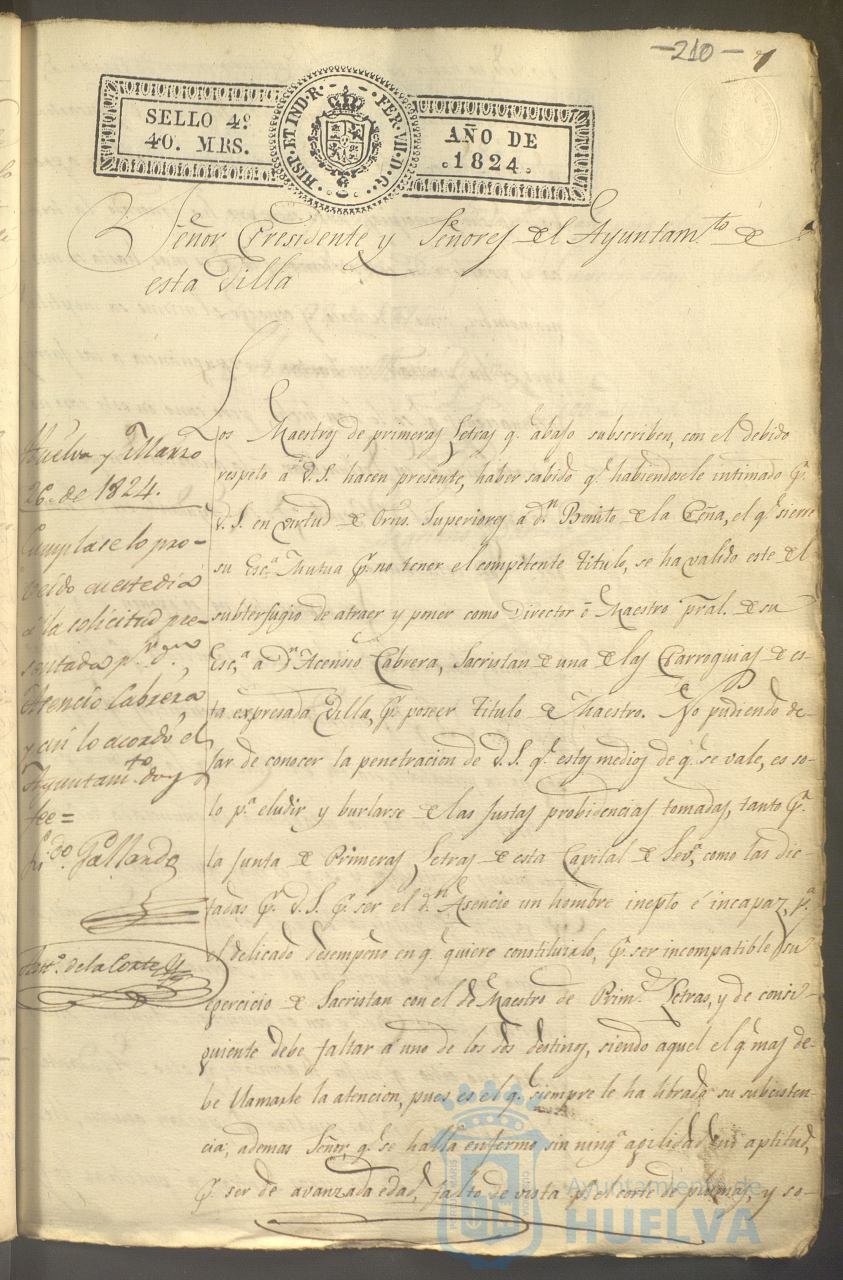 -210-
SELLO 4º
40. MRS.
HISP. ET IND. R. FER. VII. D. G.
AÑO DE
1824.
Señor Presidente y Señores del Ayuntam.to de
esta Villa
Los Maestros de primeras Letras q.e abajo subscriben, con el debido
respeto a V.S. hacen presente, haber sabido q.e habiendosele intimado p.r
V.S. en virtud de Orns. Superiores a d.n Benito de la Peña, el q.e cierre
su Esc.a Mutua p.r no tener el competente Titulo, se ha valido este del
subterfugio de atraer y poner como Director ó Maestro pral. de su
Esc.a a D.n Acensio Cabrera, Sacristan de una de las Parroquias de es-
ta expresada Villa, p.r poseer Titulo de Maestro. No pudiendo de-
jar de conocer la penetracion de V.S. q.e estos medios de q.e se vale, es so-
lo p.a eludir y burlarse de las justas probidencias tomadas, tanto p.r
la Junta de Primeras Letras de esta Capital de Sev.a, como las dic-
tadas p.r V.S. p.r ser el d.n Asencio un hombre inepto é incapaz, p.a
el delicado desempeño en q.e quiere constituirlo, p.r ser incompatible su
egercicio de Sacristan con el de Maestro de Prim.s Letras, y de consi-
guiente debe faltar a uno de los dos destinos, siendo aquel el q.e mas de-
be llamarle la atencion, pues es el q.e siempre le ha librado su subcisten-
cia; ademas Señor, q.e se halla enfermo sin ning.a agilidad ni aptitud,
p.r ser de avanzada edad, falto de vista p.a el corte de plumas, y so-
Huelva y Marzo
26. de 1824.
Cumplase lo pro-
veido en este dia
a la solicitud pre-
sentada p.r d.n
Atencio Cabrera
y asi lo acordó el
Ayuntam.to doy
fee=
Gallardo
de la Corte
Ayuntamiento de
HUELVA